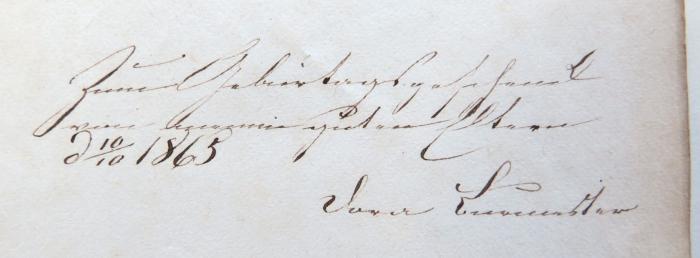 Zum Geburtagsgeschenk
von meinen guten Eltern
d 10/10 1865
Dora Burmester